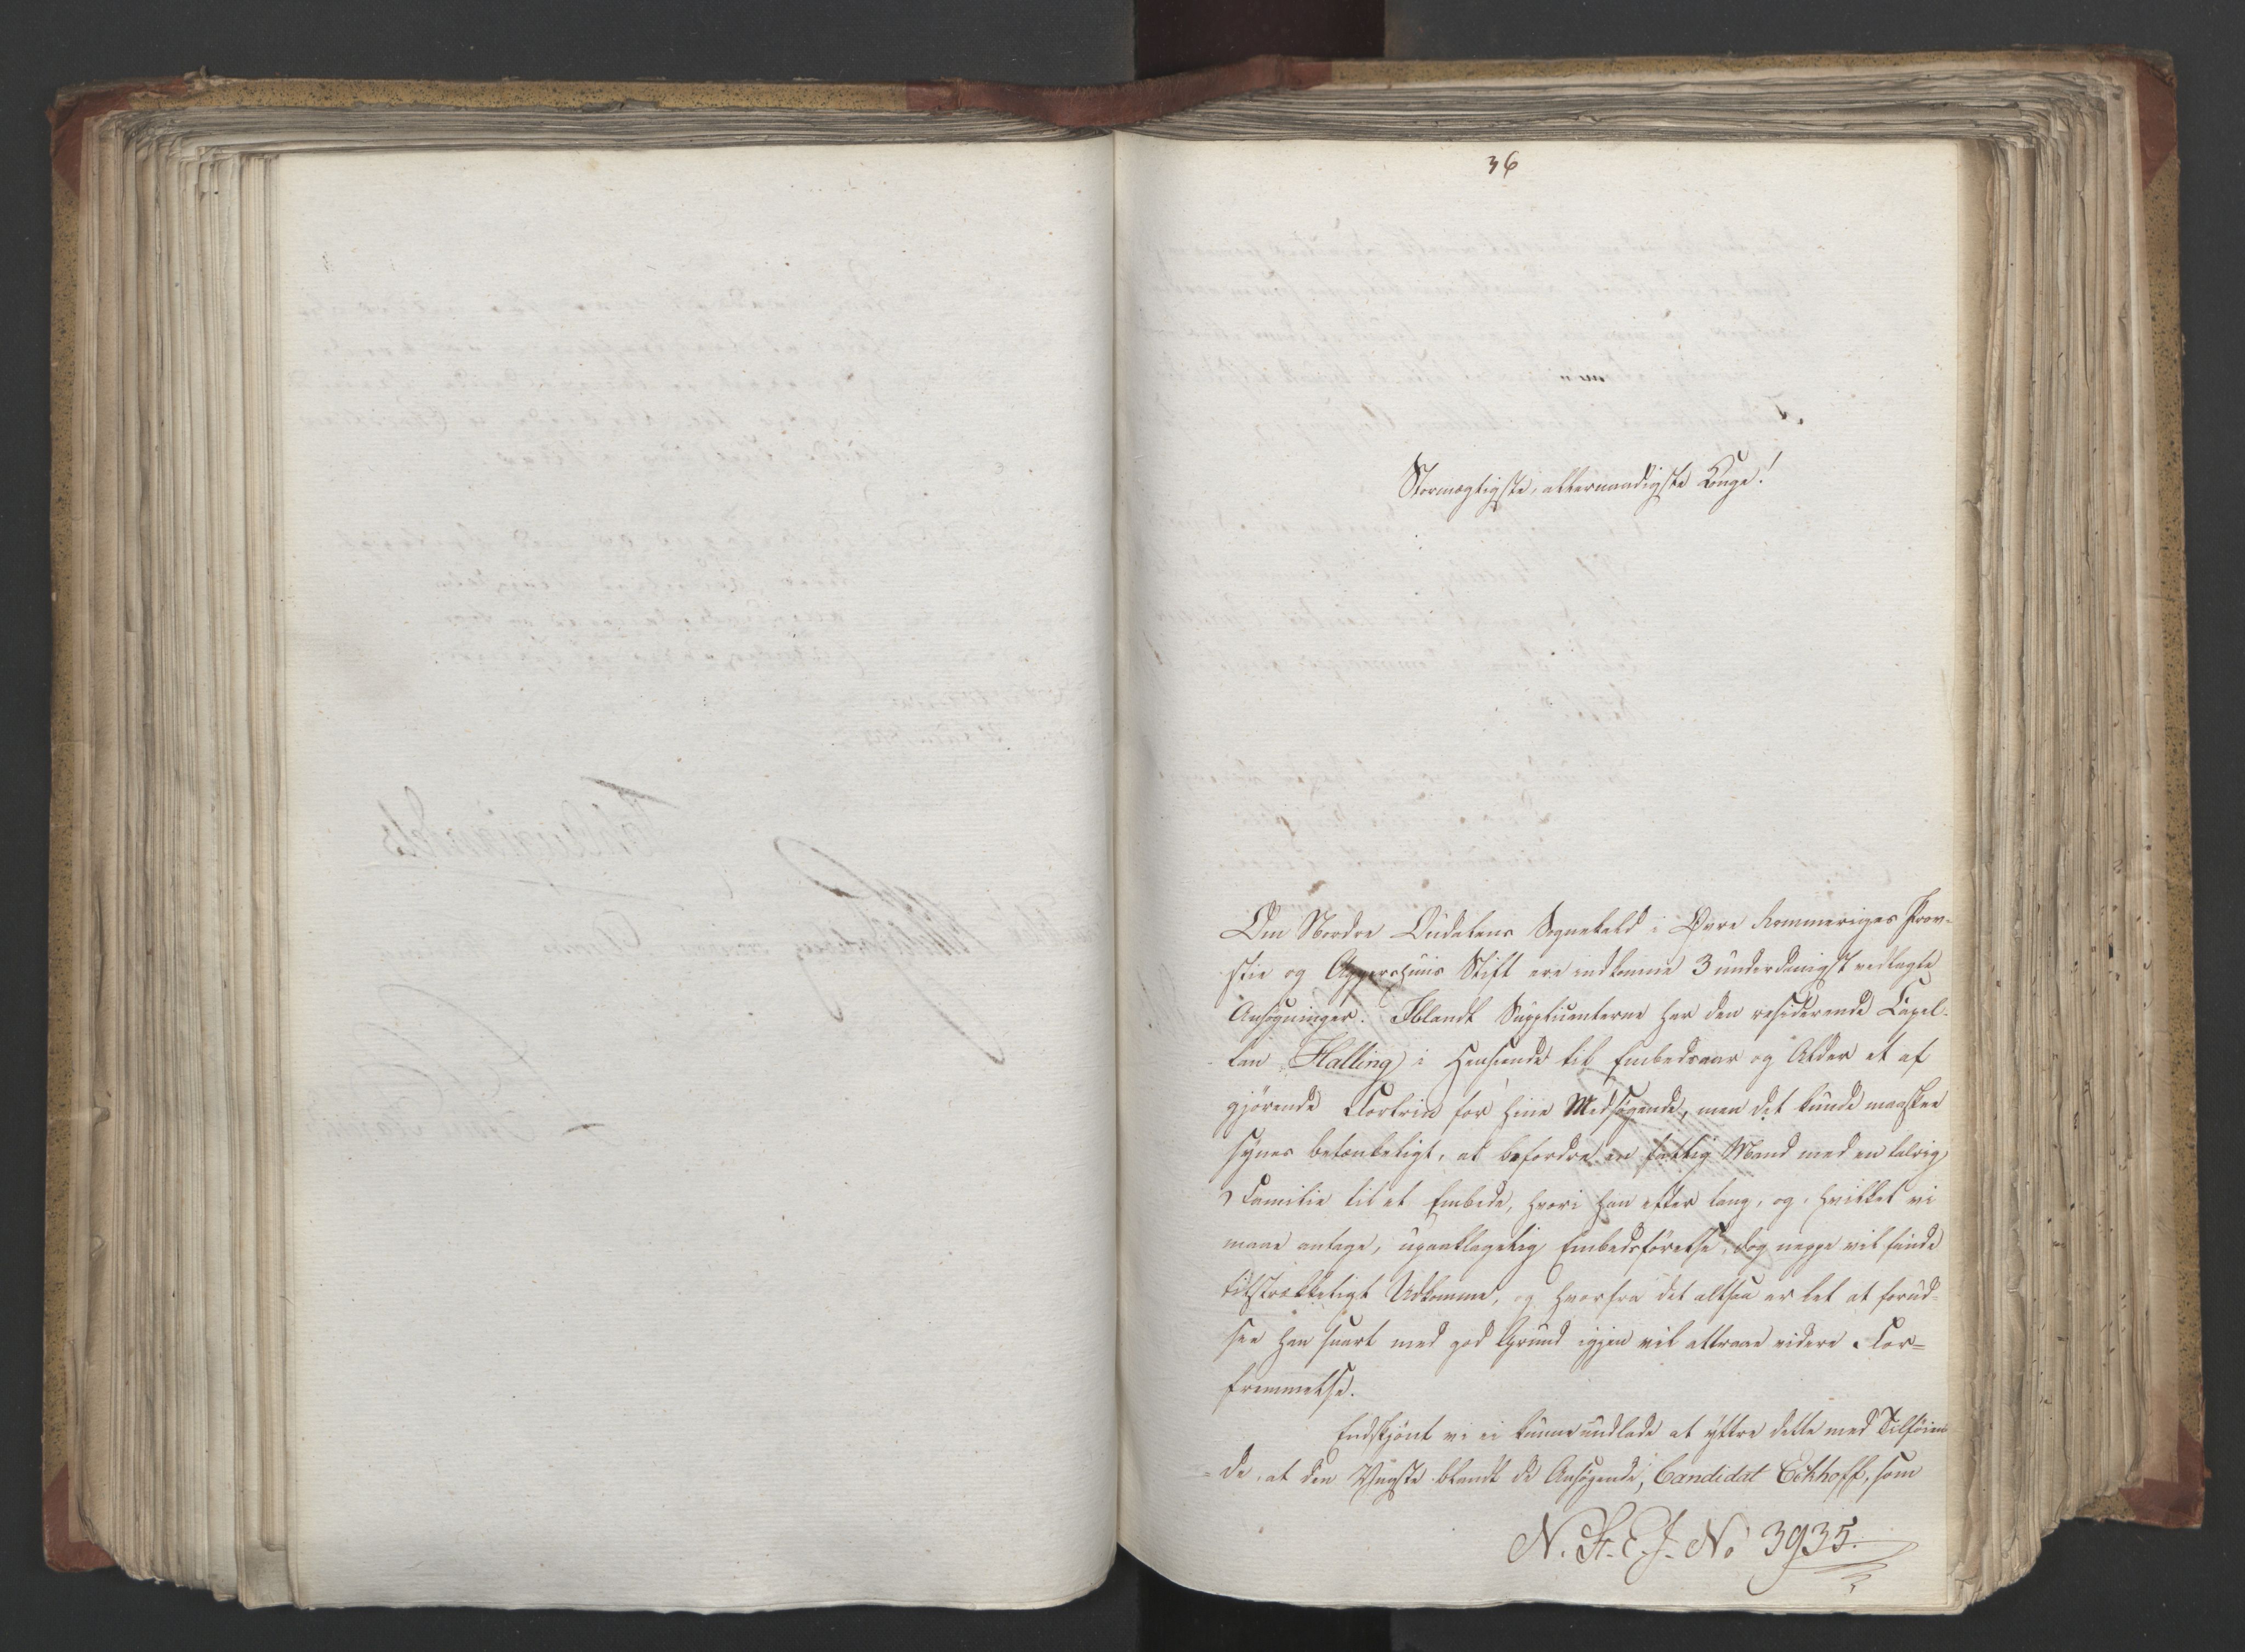 36
Stormægtigste, allernaadigste Konge!
Om Nordre Oudalens Sognekald i Øvre Rommeriges Prov-
stie og Aggershuus Stift ere indkomne 3 underdanigst vedlagte
Ansøgninger. Iblandt Suppliqanterne har den residerende Capel-
lan Halling i Henseende til Embedsaar og Alder et af
gjørende Fortrin for hine Medsøgende, men det kunde maaskee
synes betænkeligt, at befordre en fattig Mand med en talrig
Familie til et Embede, hvori han efter lang, og, hvilket vi
maae antage, upaaklagelig Embedsførelse, dog neppe vil finde
tilstrækkeligt Udkomme, og hvorfra det altsaa er let at forud-
see han snart med god Grund igjen vil attraae videre For=
fremmelse.
Endskjönt vi ei kunne undlade at yttre dette med Tilføien
= de, at den Yngste blandt de Ansøgende, Candidat Eckhoff, som
N. St. E. J. No 3935.